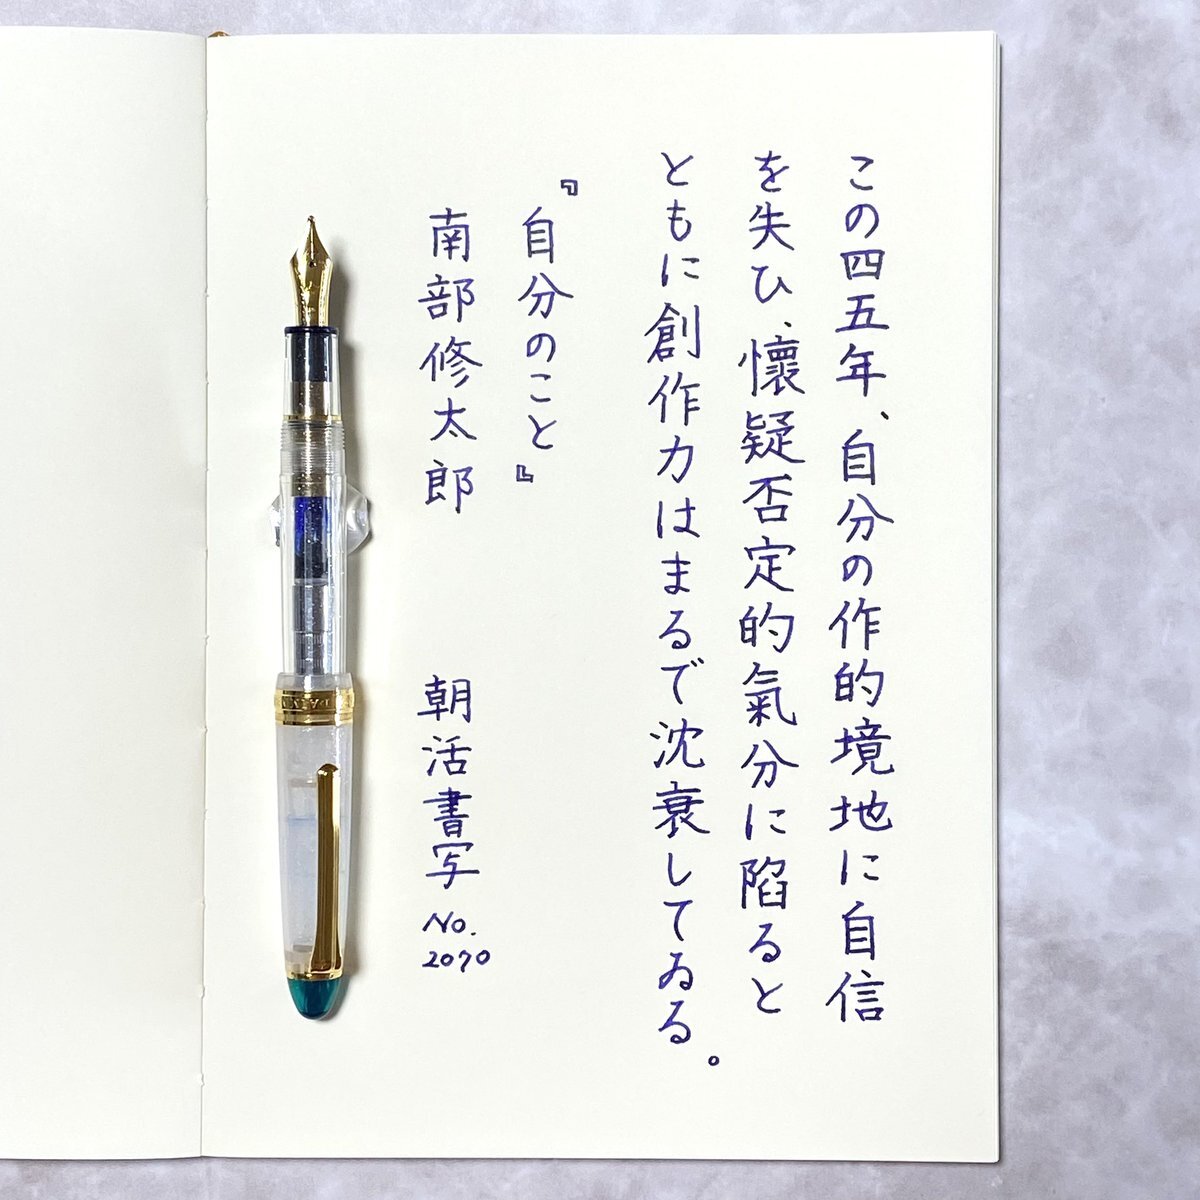 この四五年、自分の作的境地に自信
を失ひ、懷疑否定的氣分に陷ると
ともに創作力はまるで沈衰してゐる。
『自分のこと』
南部修太郎
朝活書写
No.
2070